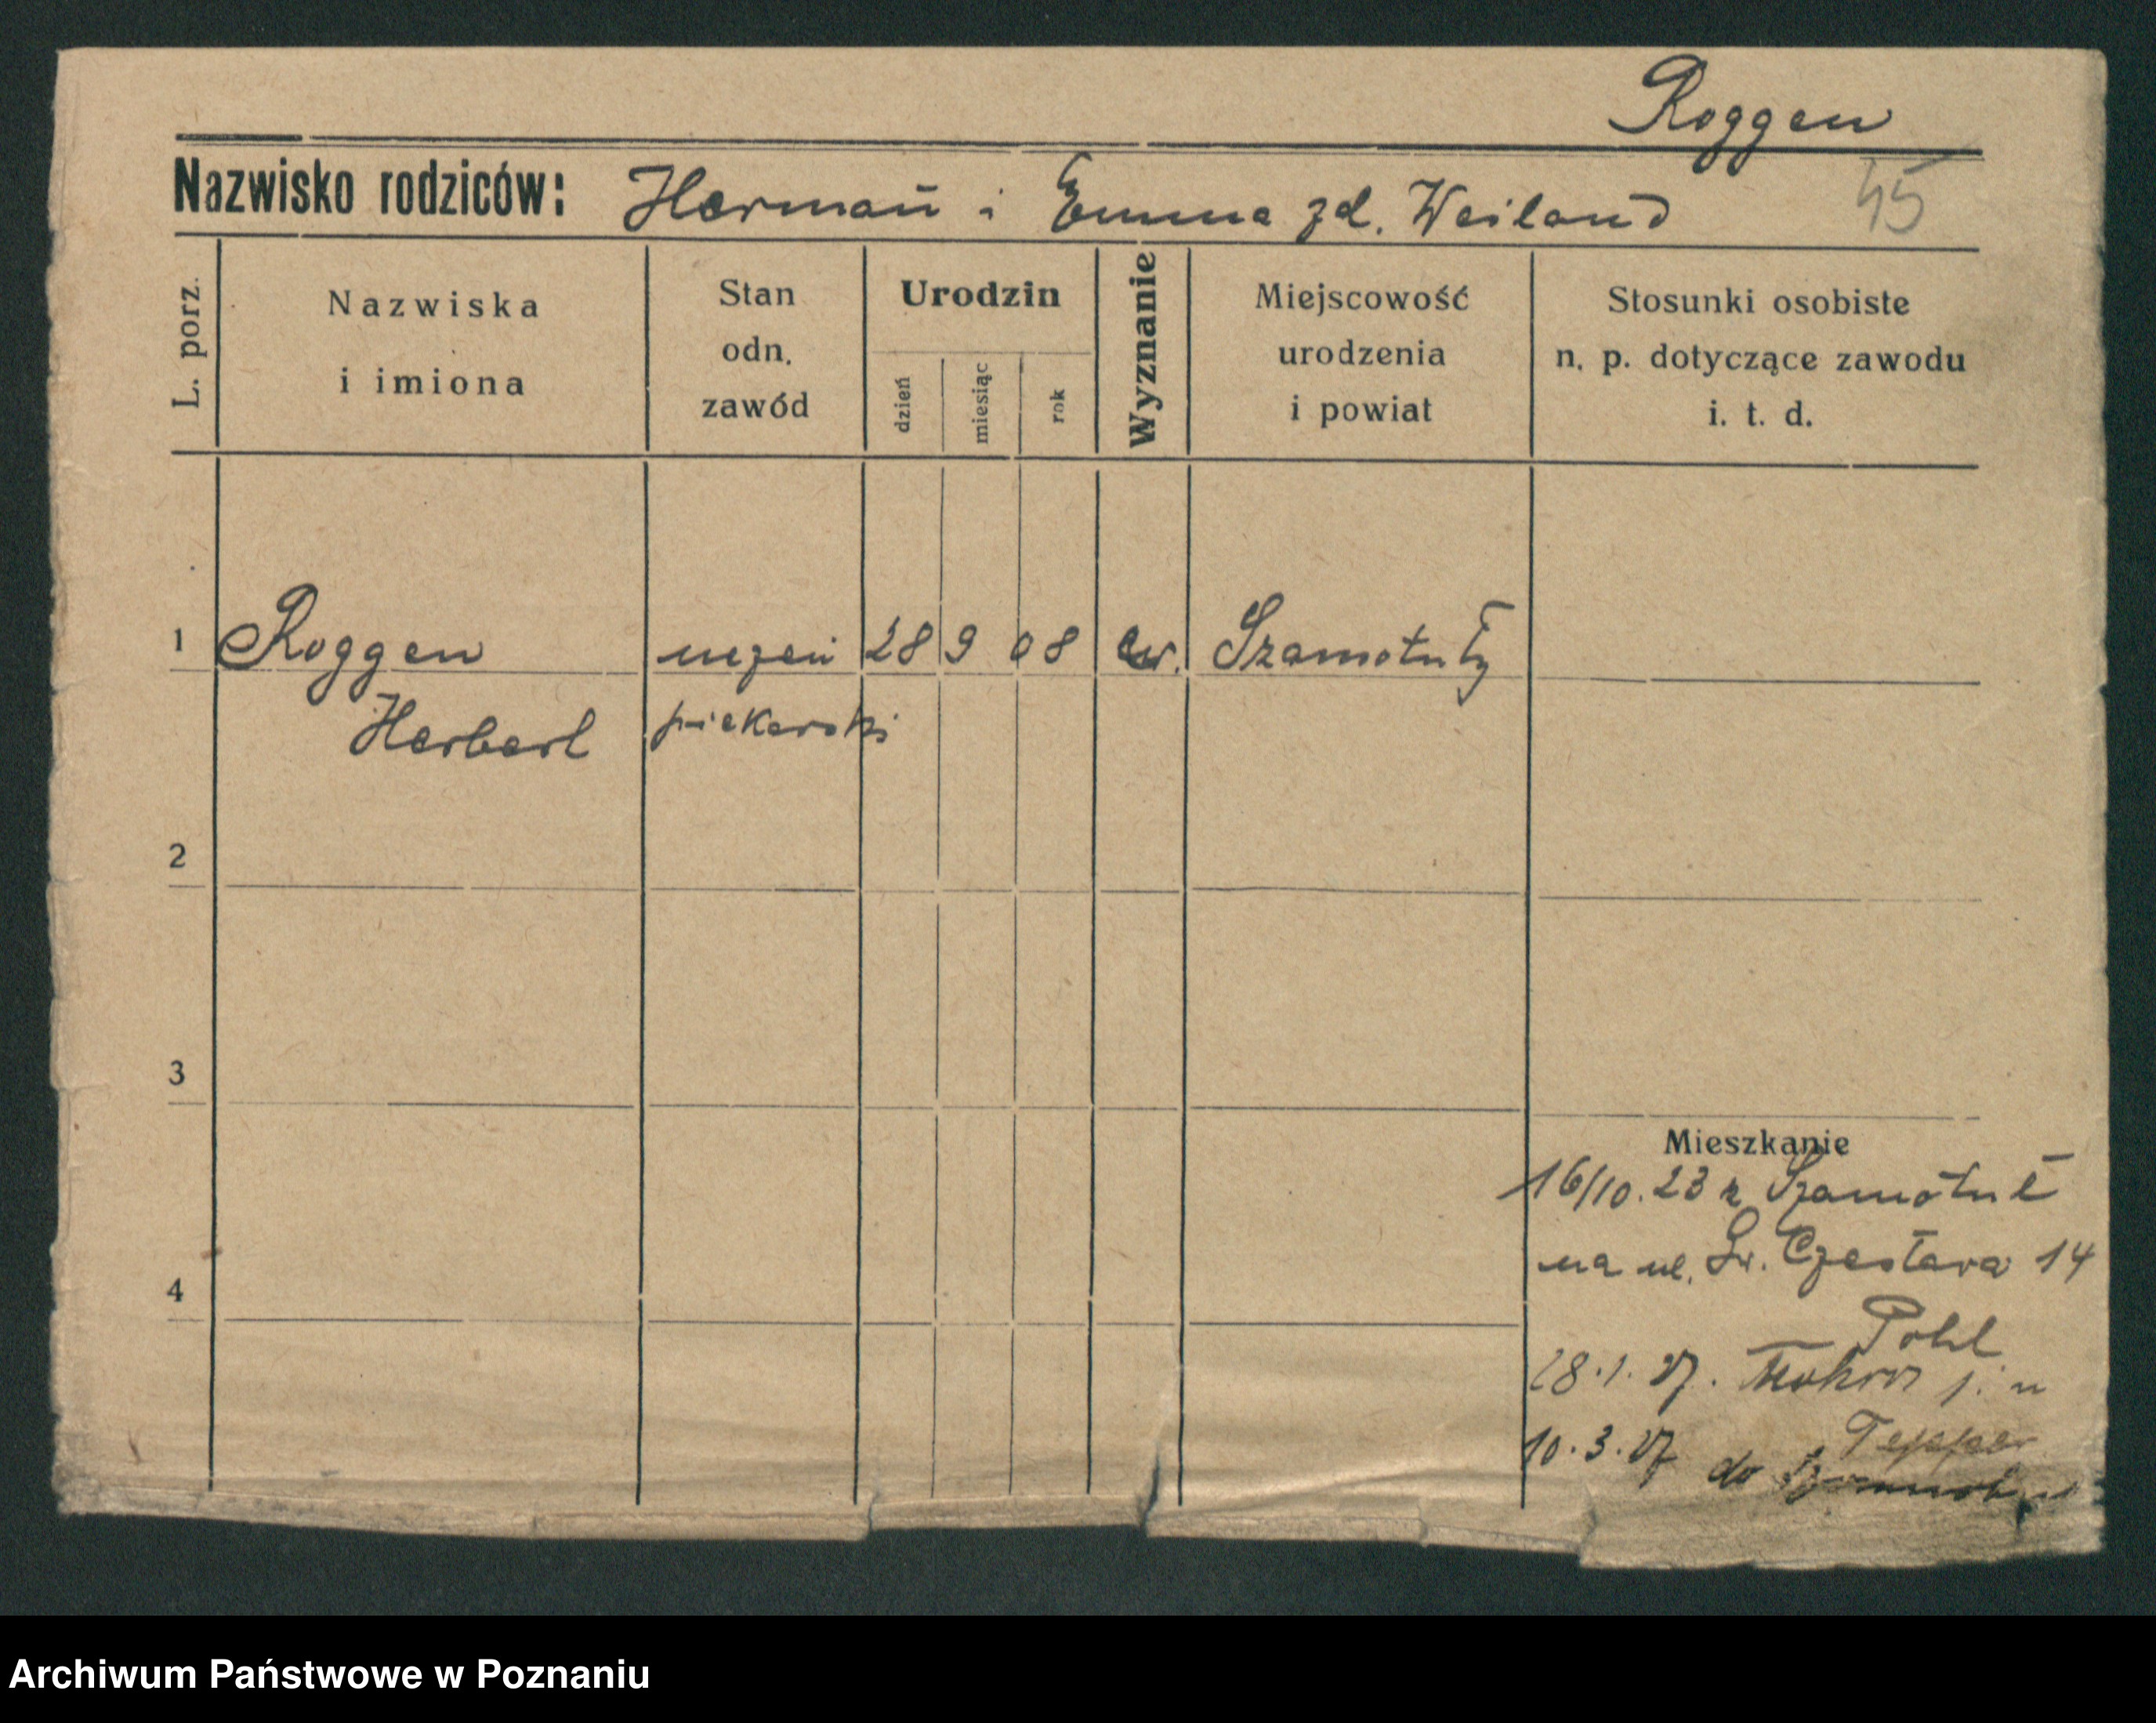 Roggen
Nazwisko rodziców: Hermann i Emma zd. Weiland
45
L. porz.
Nazwiska
i imiona
Stan
odn.
zawód
Urodzin
dzień
miesiąc
rok
Wyznanie
Miejscowość
urodzenia
i powiat
Stosunki osobiste
n. p. dotyczące zawodu
i. t. d.
1 Roggen uczeń 28 9 08 ew. Szamotuły
Herbert piekarski
2
3
4
Mieszkanie
16/10.23 z Szamotuł
na ul. Św. Czesława 14
Pohl
28.1.27. j. w
Tepper
10.3.27 do
Archiwum Państwowe w Poznaniu